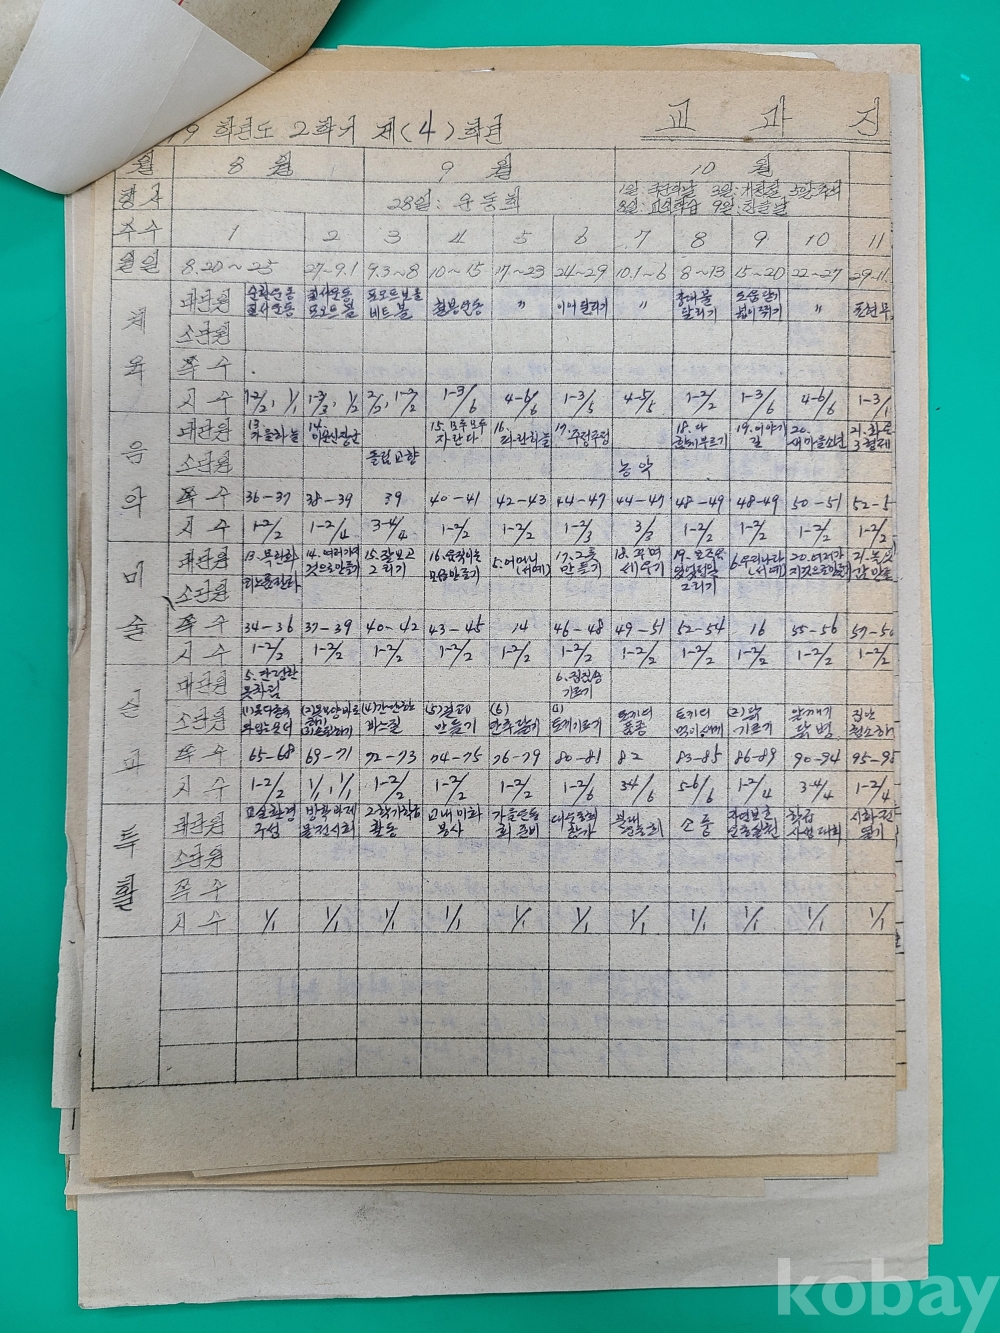 9 학년도 2학기 제(4)학년 교 과 진
월 8 월 9 월 10 월
행사 28일: 운동회 1일: 국군의날 3일: 개천절 5일: 추석
8일: 9일: 한글날
주수 1 2 3 4 5 6 7 8 9 10 11
월일 8.20~25 27~9.1 9.3~8 10~15 17~23 24~29 10.1~6 8~13 15~20 22~27 29~11.
체육
대단원 순환운동 질서운동 질서운동 포오트볼 포오트보올 비트볼 철봉운동 〃 이어달리기 〃 장애물 달리기 도움닫기 넓이뛰기 〃 표현무
소단원
쪽수
시수 1-2/2, 1/1 1-3/3, 1/2 2/2, 1-2/2 1-3/6 4-6/6 1-3/5 4-5/5 1-2/2 1-3/6 4-6/6 1-3/
음악
대단원 13. 가을하늘 14. 이순신장군 15. 모두모두 자란다 16. 파란하늘 17. 주정주정 18. 다함께부르기 19. 이야기길 20. 새마을소년 21. 화음 3형제
소단원 돌림고향 농악
쪽수 36-37 38-39 39 40-41 42-43 44-47 44-47 48-49 48-49 50-51 52-5
시수 1-2/2 1-2/4 3-4/4 1-2/2 1-2/2 1-2/3 3/3 1-2/2 1-2/2 1-2/2 1-2/2
미술
대단원 13. 목판화 14. 여러가지 것으로만들기 15. 잘보고 그리기 16. 움직이는 모습만들기 5. 어머니(서예) 17. 그릇 만들기 18. 꾸며 세우기 19. 그리기 6. 우리나라(서예) 20. 여러가지것으로만들기 21.
소단원
쪽수 34-36 37-39 40-42 43-45 14 46-48 49-51 52-54 16 55-56 57-5
시수 1-2/2 1-2/2 1-2/2 1-2/2 1-2/2 1-2/2 1-2/2 1-2/2 1-2/2 1-2/2 1-2/2
실과
대단원 5. 단정한 옷차림 6. 집짐승 기르기
소단원 (4)간단한 바느질 (5)걸레 만들기 (6)단추달기 (1)토끼기르기 토끼의 품종 토끼의 먹이 (2)닭 기르기 알깨기 닭병 집안 청소하
쪽수 65-68 69-71 72-73 74-75 76-79 80-81 82 83-85 86-89 90-94 95-98
시수 1-2/2 1/1, 1/1 1-2/2 1-2/2 1-2/2 1-2/6 3-4/6 5-6/6 1-2/4 3-4/4 1-2/4
특활
대단원 교실환경 구성 방학과제물전시회 2학기학급 활동 교내미화 봉사 가을운동회 준비 참가 소풍 자연보호 학급 시화전 열기
소단원
쪽수
시수 1/1 1/1 1/1 1/1 1/1 1/1 1/1 1/1 1/1 1/1 1/1
kobay